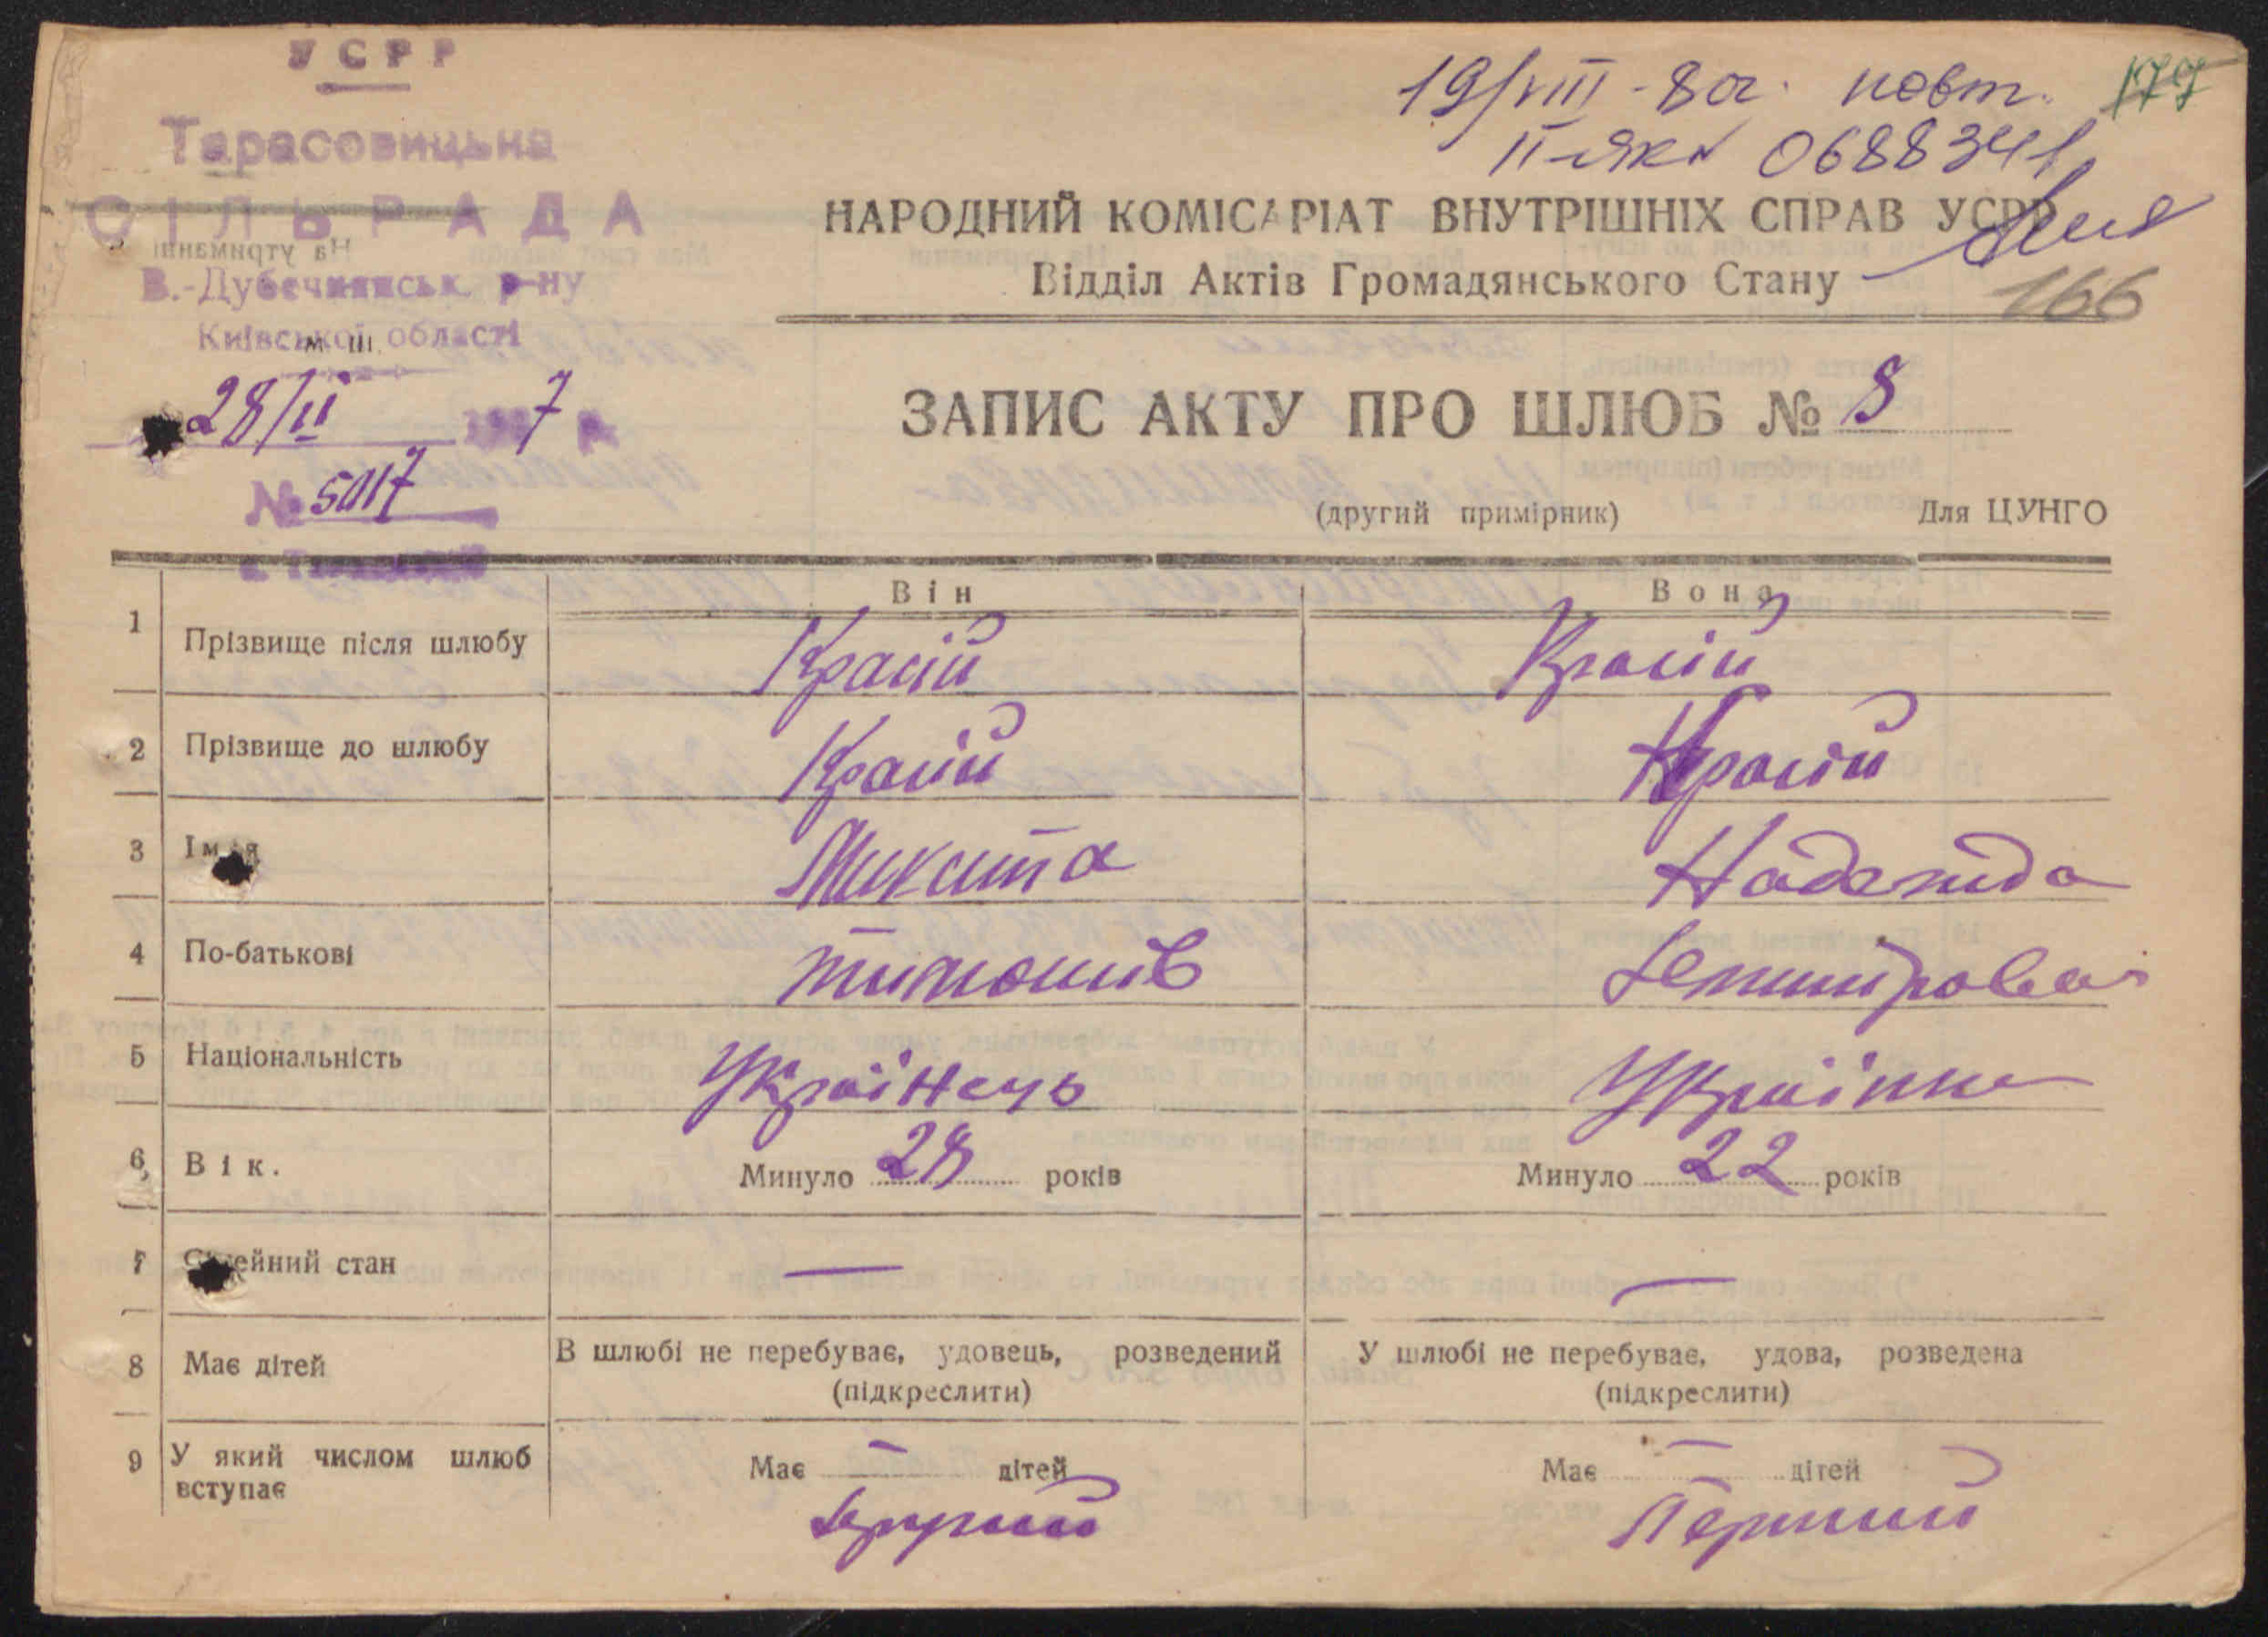 УСРР
Тарасовицька
СІЛЬРАДА
В.-Дубечнянськ. р-ну
Київської області
м. ш.
28/II 1937 р.
№ 5017
19/VIII-80г. повт. 177
II-ЯК № 0688341
НАРОДНИЙ КОМІСАРІАТ ВНУТРІШНІХ СПРАВ УСРР
Відділ Актів Громадянського Стану
166
ЗАПИС АКТУ ПРО ШЛЮБ № 8
(другий примірник) Для ЦУНГО
Він Вона
1 Прізвище після шлюбу Красій Красій
2 Прізвище до шлюбу Красій Красій
3 Ім'я Микита Надежда
4 По-батькові Тимошів
5 Національність Українець Українка
6 Вік. Минуло 28 років Минуло 22 років
7 Сімейний стан — —
8 Має дітей В шлюбі не перебуває, удовець, розведений У шлюбі не перебуває, удова, розведена
(підкреслити) (підкреслити)
9 У який числом шлюб Має — дітей Має — дітей
вступає Другий Перший